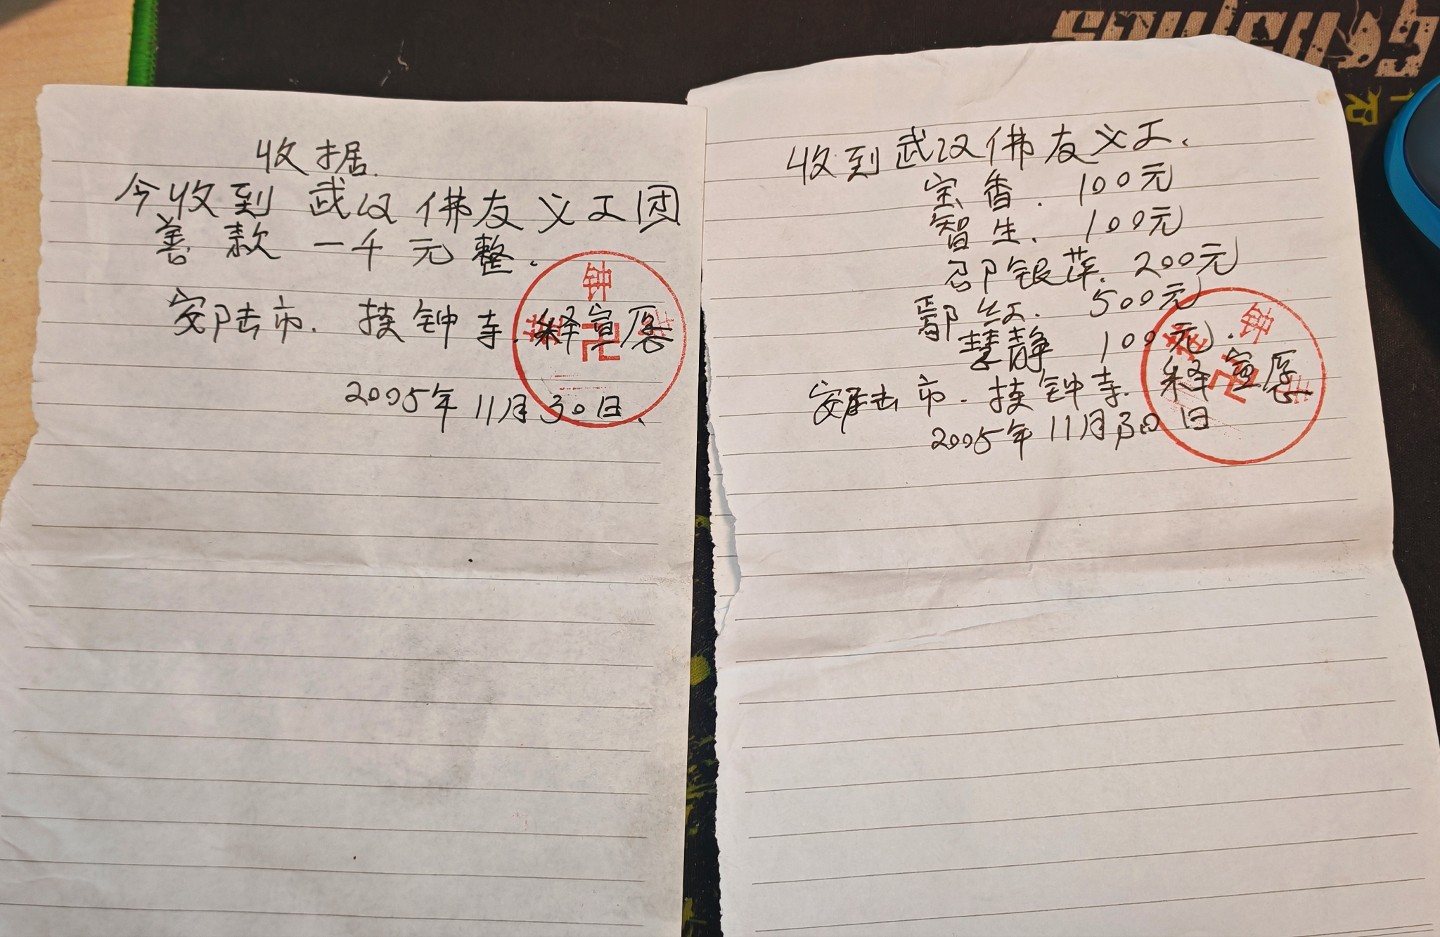 收据.
今收到 武汉佛友义工团
善款 一千元整.
安陆市. 接钟寺. 释宣愿
2005年11月30日.
收到武汉佛友义工.
宝香. 100元
智生. 100元
邵银萍. 200元
鄢红. 500元
慧静 100元.
安陆市. 接钟寺. 释宣愿
2005年11月30日
钟
卍
钟
卍